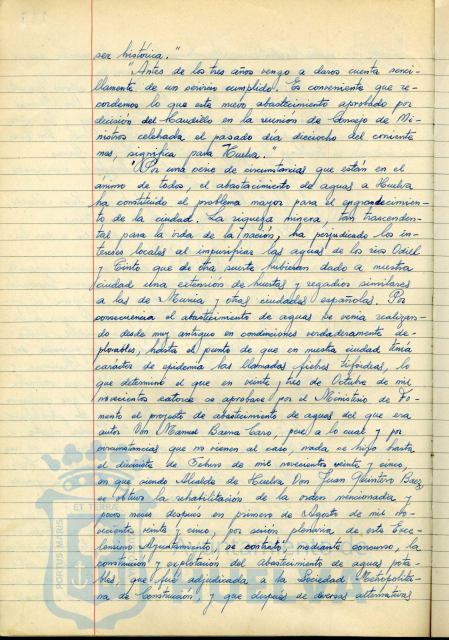 ser histórica."
"Antes de los tres años vengo a daros cuenta senci-
llamente de un servicio cumplido. Es conveniente que re-
cordemos lo que este nuevo abastecimiento aprobado por
decisión del Caudillo en la reunión de Consejo de Mi-
nistros celebrada el pasado día dieciocho del corriente
mes, significa para Huelva."
"Por una serie de circunstancias que están en el
ánimo de todos, el abastecimiento de aguas a Huelva
ha constituido el problema mayor para el engrandecimien-
to de la ciudad. La riqueza minera, tan trascenden-
tal para la vida de la nación, ha perjudicado los in-
tereses locales al impurificar las aguas de los ríos Odiel
y Tinto que de otra suerte hubieran dado a nuestra
ciudad una extensión de huertas y regadíos similares
a las de Murcia y otras ciudades españolas. Por
consecuencia el abastecimiento de aguas se venía realizan-
do desde muy antiguo en condiciones verdaderamente de-
plorables, hasta el punto de que en nuestra ciudad tenía
carácter de epidemia las llamadas fiebres tifoideas, lo
que determinó el que en veinte y tres de Octubre de mil
novecientos catorce se aprobase por el Ministerio de Fo-
mento el proyecto de abastecimiento de aguas del que era
autor Don Manuel Baena Caro, pese a lo cual y por
circunstancias que no vienen al caso, nada se hizo hasta
el dieciseis de Febrero de mil novecientos veinte y cinco,
en que siendo Alcalde de Huelva Don Juan Quintero Baez,
se obtuvo la rehabilitación de la orden mencionada y
pocos meses después en primero de Agosto de mil no-
vecientos veinte y cinco, por sesión plenaria de este Exce-
lentísimo Ayuntamiento, se contrató mediante concurso, la
construcción y explotación del abastecimiento de aguas pota-
bles, que fué adjudicada a la Sociedad Metropolita-
na de Construcción, y que después de diversas alternativas
PORTUS MARIS
ET TERRÆ